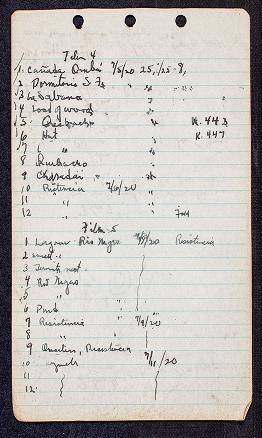 Film 4
1. Cañada Ombú 7/5/20 25, 1/25-8,
2 Dormitorio S. Fe "
3 La Sabana " "
4 Load of wood " "
5 Quebracho " K. 443
6 Hut " K. 447
7 "
8 Quebracho "
9 Charadai "
10 Resistencia 7/6/20
11 "
12 "
Film 5
1 Lagoon Rio Negro 7/8/20 Resistencia
2 "
3 Termite nest
4 Rio Negro
5 "
6 "
7 Resistencia 7/9/20
8 " "
9 Quarters, Resistencia
10 7/11/20
11
12